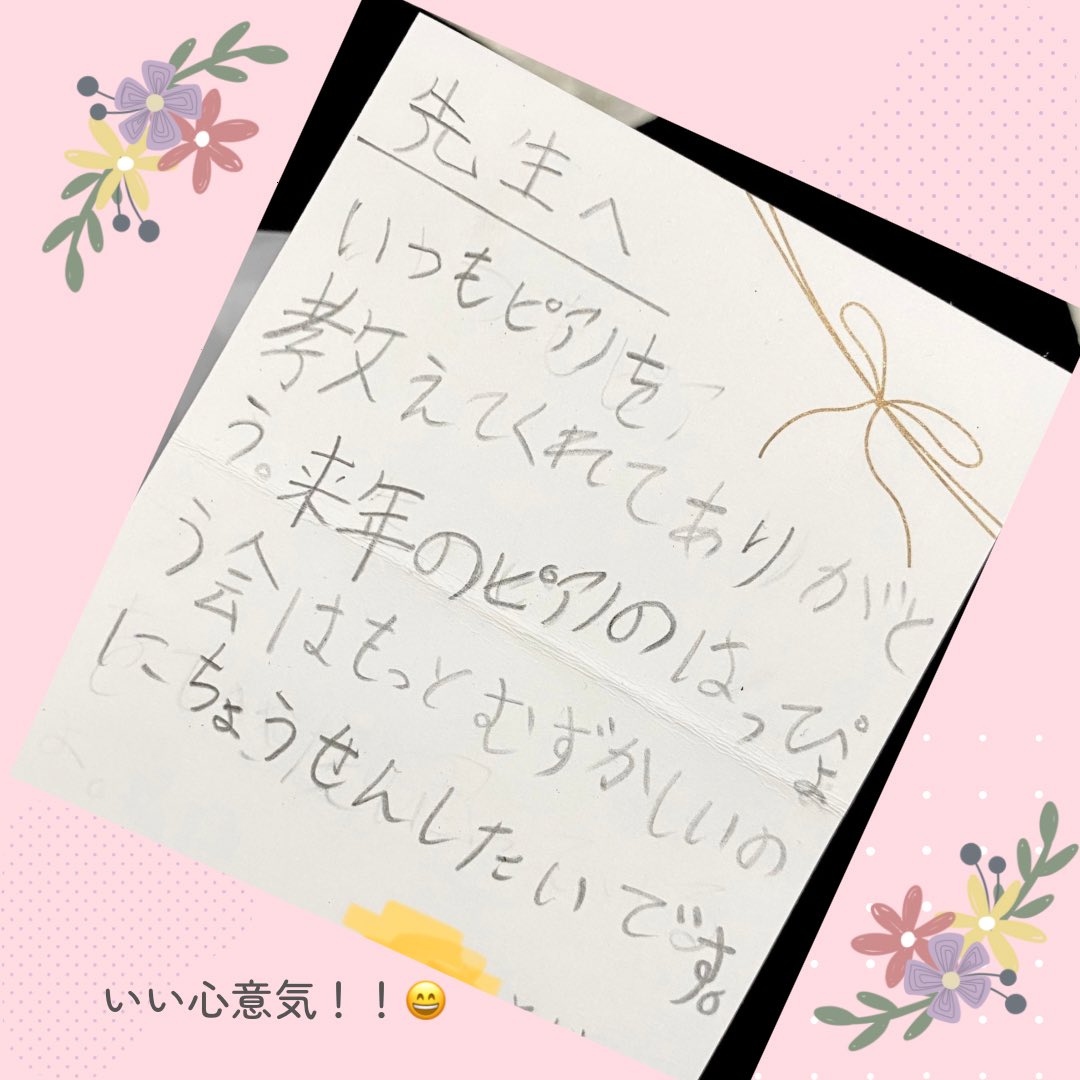 先生へ
いつもピアノを
教えてくれてありがと
う。来年のピアノのはっぴょ
う会はもっとむずかしいの
にちょうせんしたいです。
いい心意気！！😄